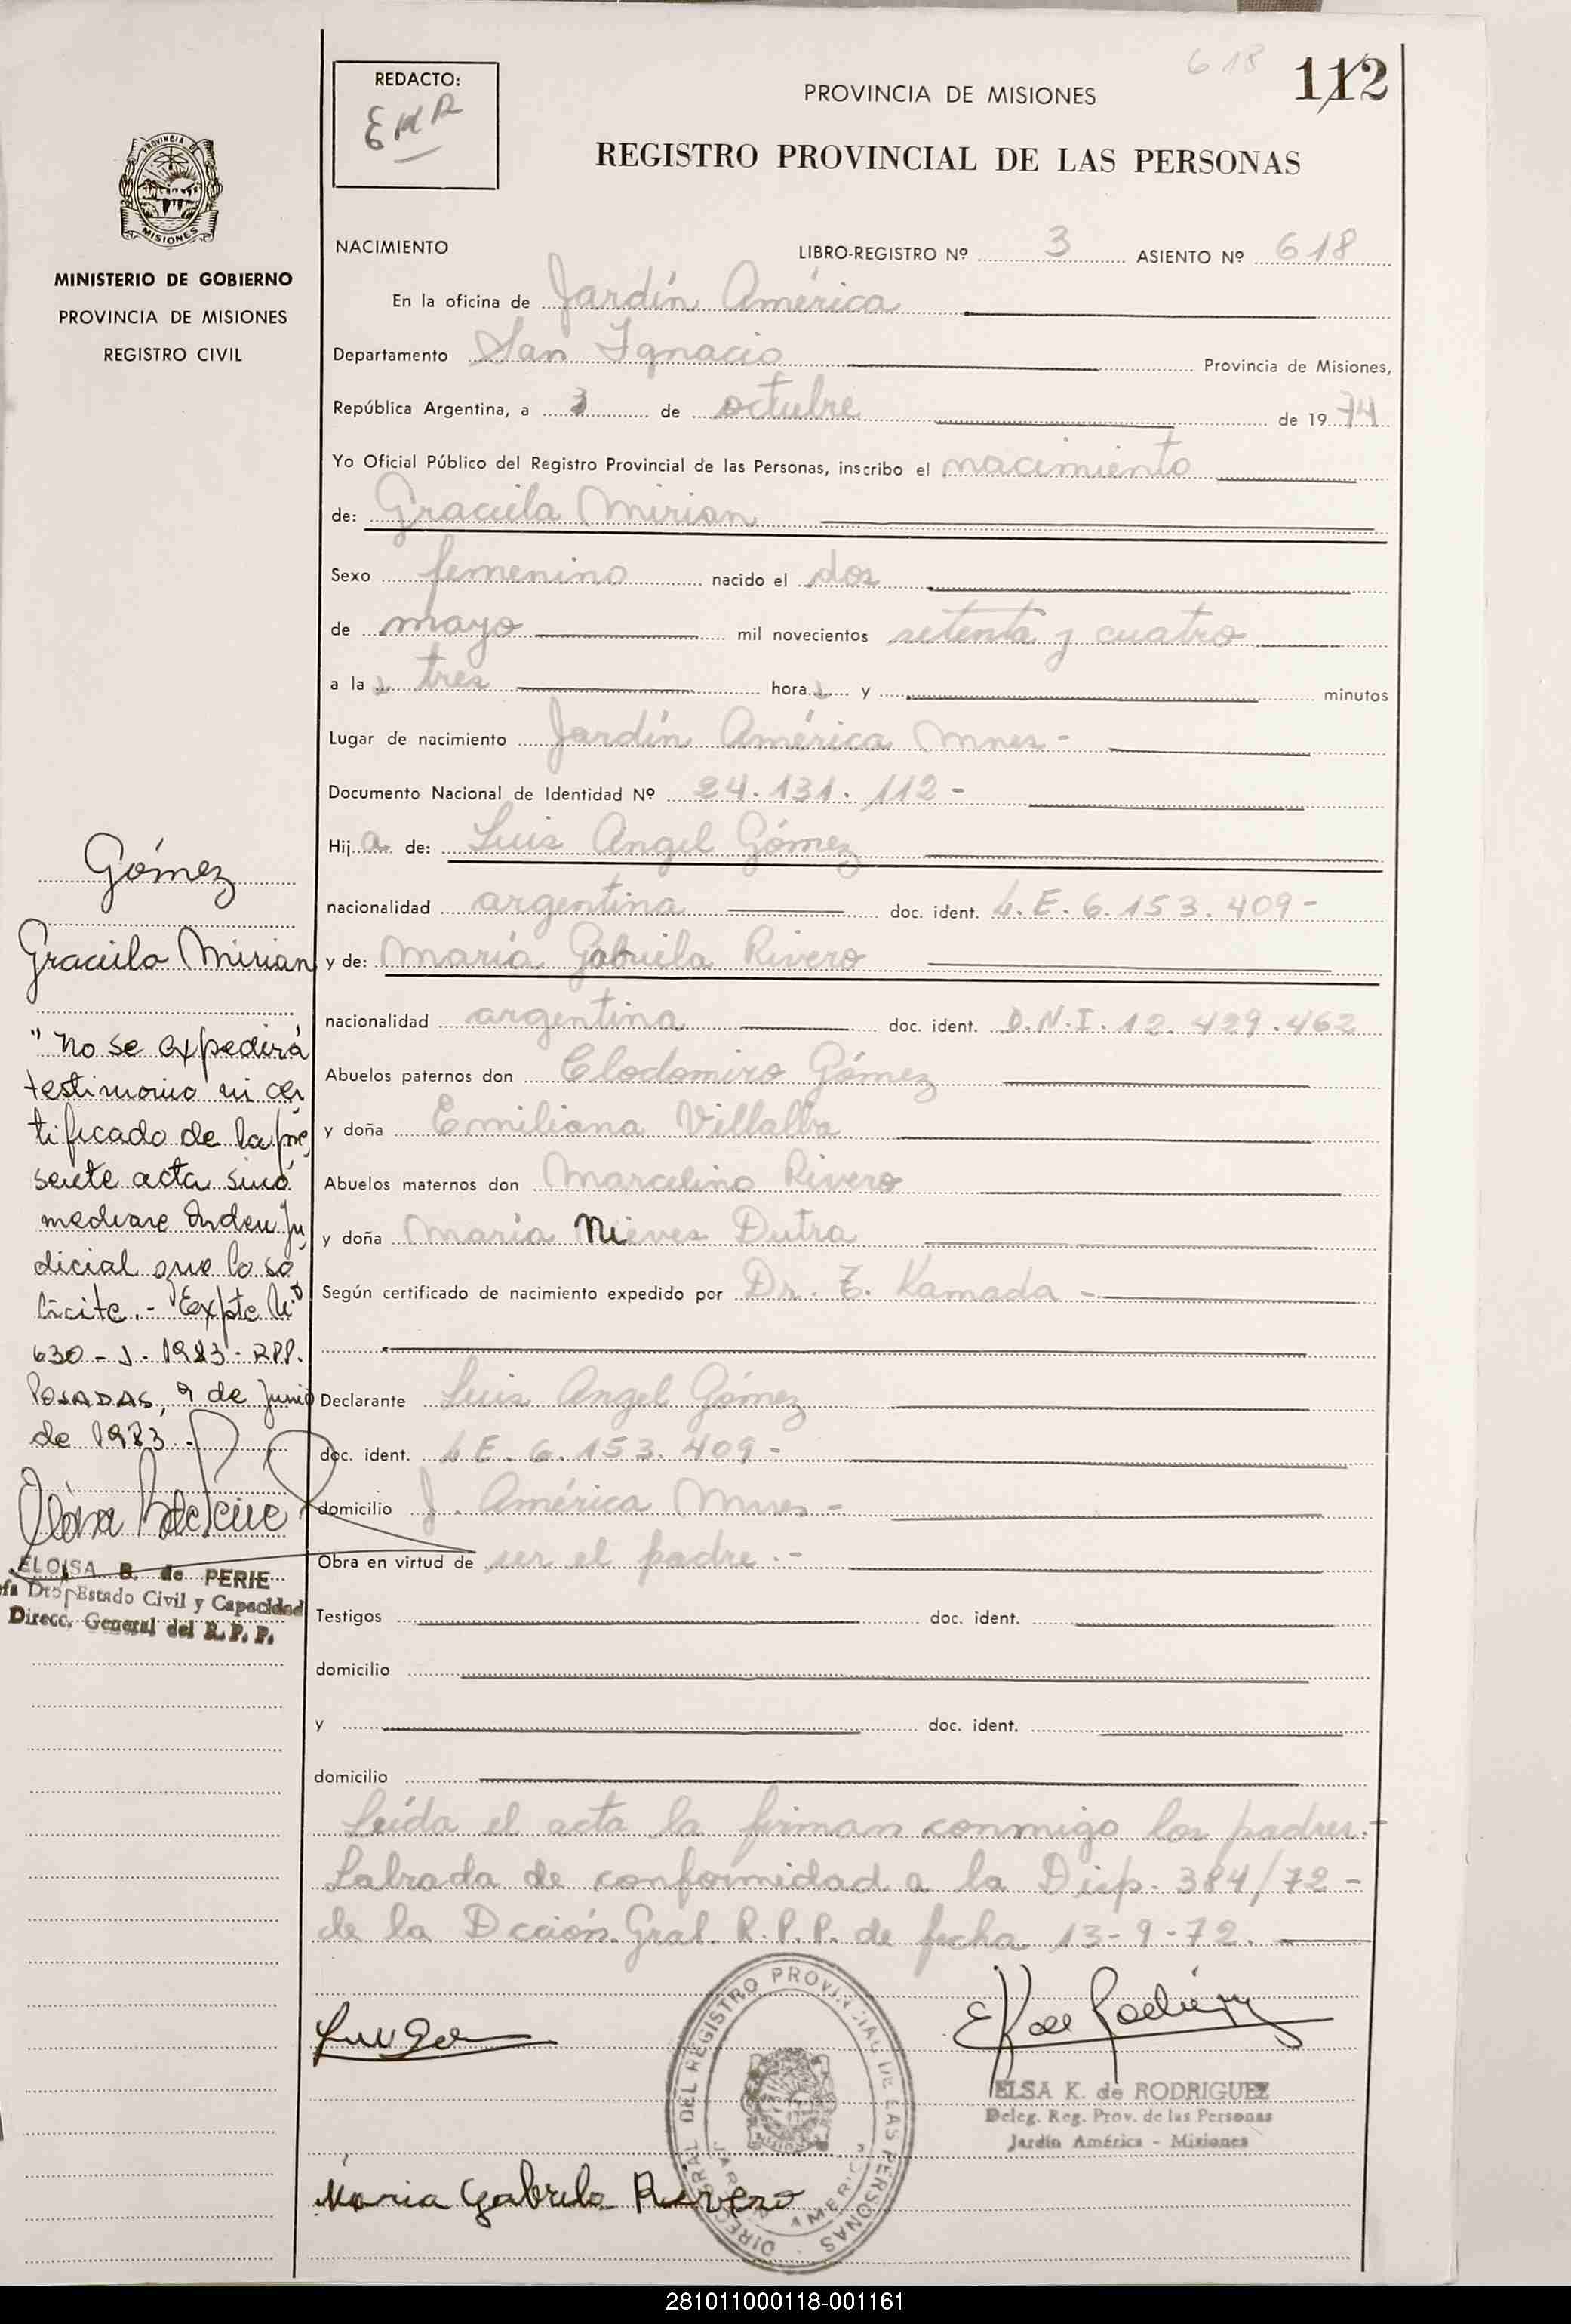 618
112
REDACTO:
EKR
PROVINCIA DE MISIONES
REGISTRO PROVINCIAL DE LAS PERSONAS
PROVINCIA DE
MISIONES
MINISTERIO DE GOBIERNO
PROVINCIA DE MISIONES
REGISTRO CIVIL
NACIMIENTO LIBRO-REGISTRO Nº 3 ASIENTO Nº 618
En la oficina de Jardín América
Departamento San Ignacio Provincia de Misiones,
República Argentina, a 3 de octubre de 1974
Yo Oficial Público del Registro Provincial de las Personas, inscribo el nacimiento
de: Graciela Mirian
Sexo femenino nacido el dos
de mayo mil novecientos setenta y cuatro
a las tres horas y minutos
Lugar de nacimiento Jardín América Mnes-
Documento Nacional de Identidad Nº 24.131.112-
Hija de: Luis Angel Gómez
nacionalidad argentina doc. ident. L.E. 6.153.409-
y de: María Gabriela Rivero
nacionalidad argentina doc. ident. D.N.I. 12.429.462
Abuelos paternos don Clodomiro Gómez
y doña Emiliana Villalba
Abuelos maternos don Marcelino Rivero
y doña María Nieves Dutra
Según certificado de nacimiento expedido por Dr. Z. Kamada -
Declarante Luis Angel Gómez
doc. ident. L.E. 6.153.409-
domicilio J. América Mnes-
Obra en virtud de ser el padre.-
Testigos doc. ident.
domicilio
y doc. ident.
domicilio
Leída el acta la firman conmigo los padres.-
Labrada de conformidad a la Disp. 384/72-
de la Dcción. Gral. R.P.P. de fecha 13-9-72.
Gómez
Graciela Mirian
"No se expedirá
testimonio ni cer
tificado de la pre
sente acta sinó
mediare Orden Ju
dicial que lo so
licite.- Expte Nº
630-J-1983-RPP.
POSADAS, 9 de Junio
de 1983.-
ELOISA B. de PERIE
Jefa Dto. Estado Civil y Capacidad
Direcc. General del R. P. P.
E K de Rodriguez
ELSA K. de RODRIGUEZ
Deleg. Reg. Prov. de las Personas
Jardín América - Misiones
DIRECC GRAL DEL REGISTRO PROVINCIAL DE LAS PERSONAS
JARDIN AMERICA
María Gabriela Rivero
281011000118-001161